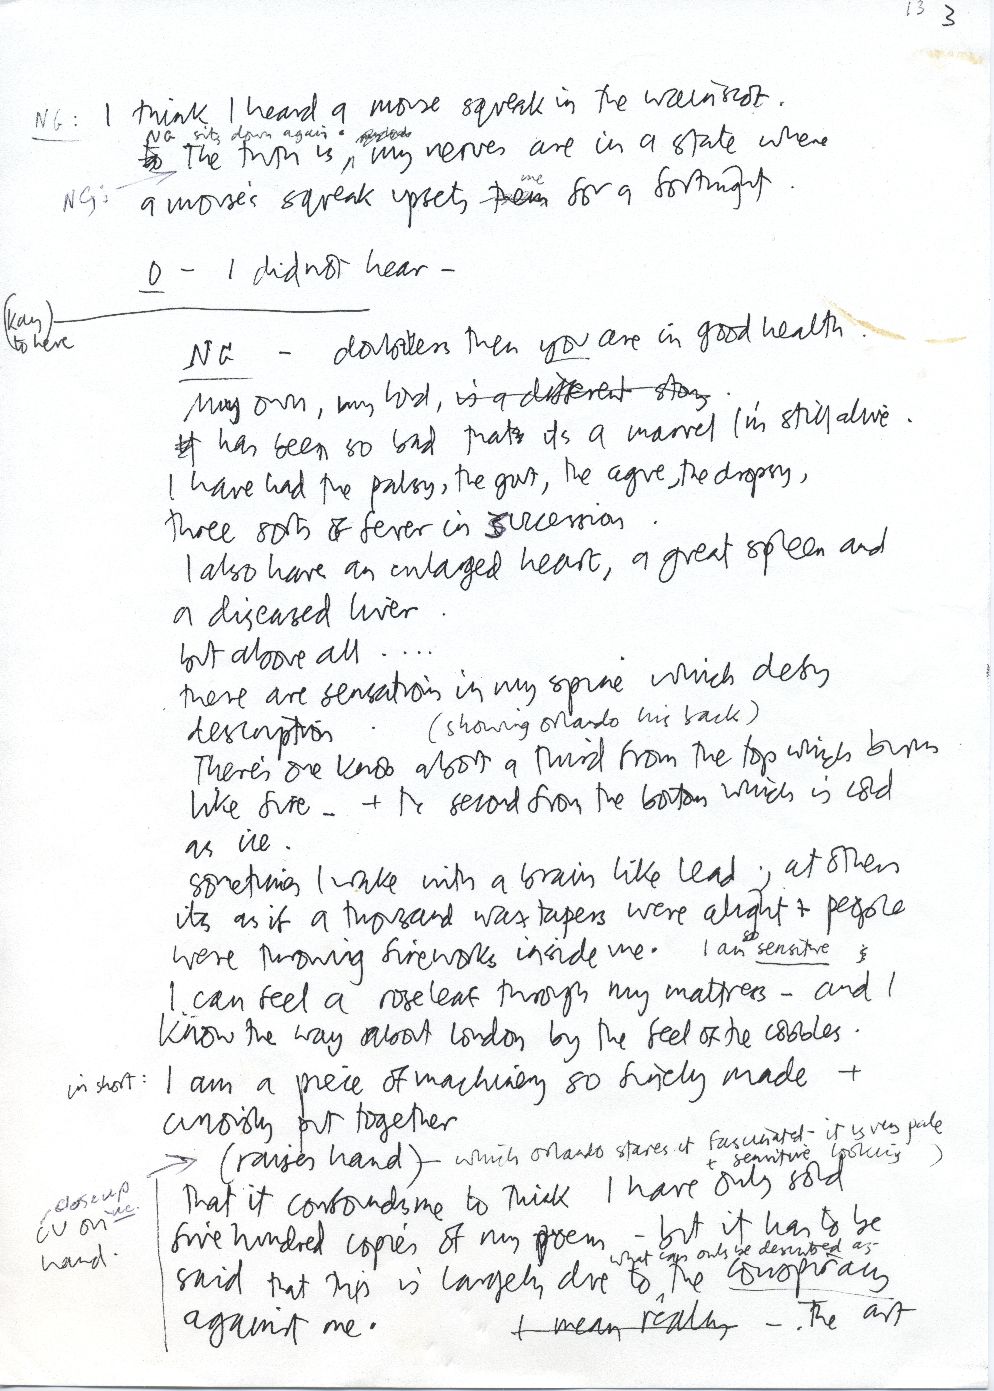 13 3
NG: I think I heard a mouse squeak in the wainscot.
NG sits down again.
The truth is, my nerves are in a state where
NG:
me
a mouse's squeak upsets them for a fortnight.
O - I did not hear -
(Kay)
to here
NG - doubtless then you are in good health.
My own, my lord, is a different story.
It has been so bad that its a marvel I'm still alive.
I have had the palsy, the gout, the ague, the dropsy,
three sorts of fever in succession.
I also have an enlaged heart, a great spleen and
a diseased liver.
but above all ....
there are sensations in my spine which defy
description. (showing orlando his back)
There's one knob about a third from the top which burns
like fire - + the second from the bottom which is cold
as ice.
sometimes I wake with a brain like lead; at others
its as if a thousand wax tapers were alight + people
were throwing fireworks inside me. I am so sensitive
I can feel a rose leaf through my mattress - and I
know the way about london by the feel of the cobbles.
in short: I am a piece of machinery so finely made +
curiously put together
(raises hand) - which orlando stares at fascinated - it is very pale
+ sensitive looking)
That it confounds me to think I have only sold
close up
CU on
hand.
five hundred copies of my poem - but it has to be
what can only be described as
said that this is largely due to the conspiracy
against me. I mean really - . The art